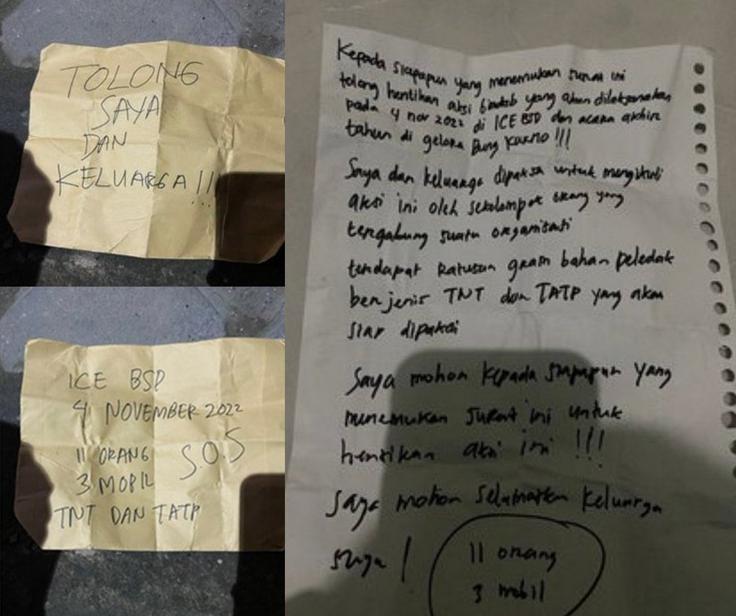 TOLONG
SAYA
DAN
KELUARGA !!
ICE BSD
4 NOVEMBER 2022
11 ORANG S.O.S
3 MOBIL
TNT DAN TATP
Kepada siapapun yang menemukan surat ini
tolong hentikan aksi yang akan dilaksanakan
pada 4 nov 2022 di ICE BSD dan acara akhir
tahun di gelora Bung Karno !!!
Saya dan keluarga dipaksa untuk mengikuti
aksi ini oleh sekelompok orang yang
tergabung suatu organisasi
terdapat ratusan gram bahan peledak
berjenis TNT dan TATP yang akan
siap dipakai
Saya mohon kepada siapapun yang
menemukan surat ini untuk
hentikan aksi ini !!!
saya mohon selamatkan keluarga
saya !
11 orang
3 mobil